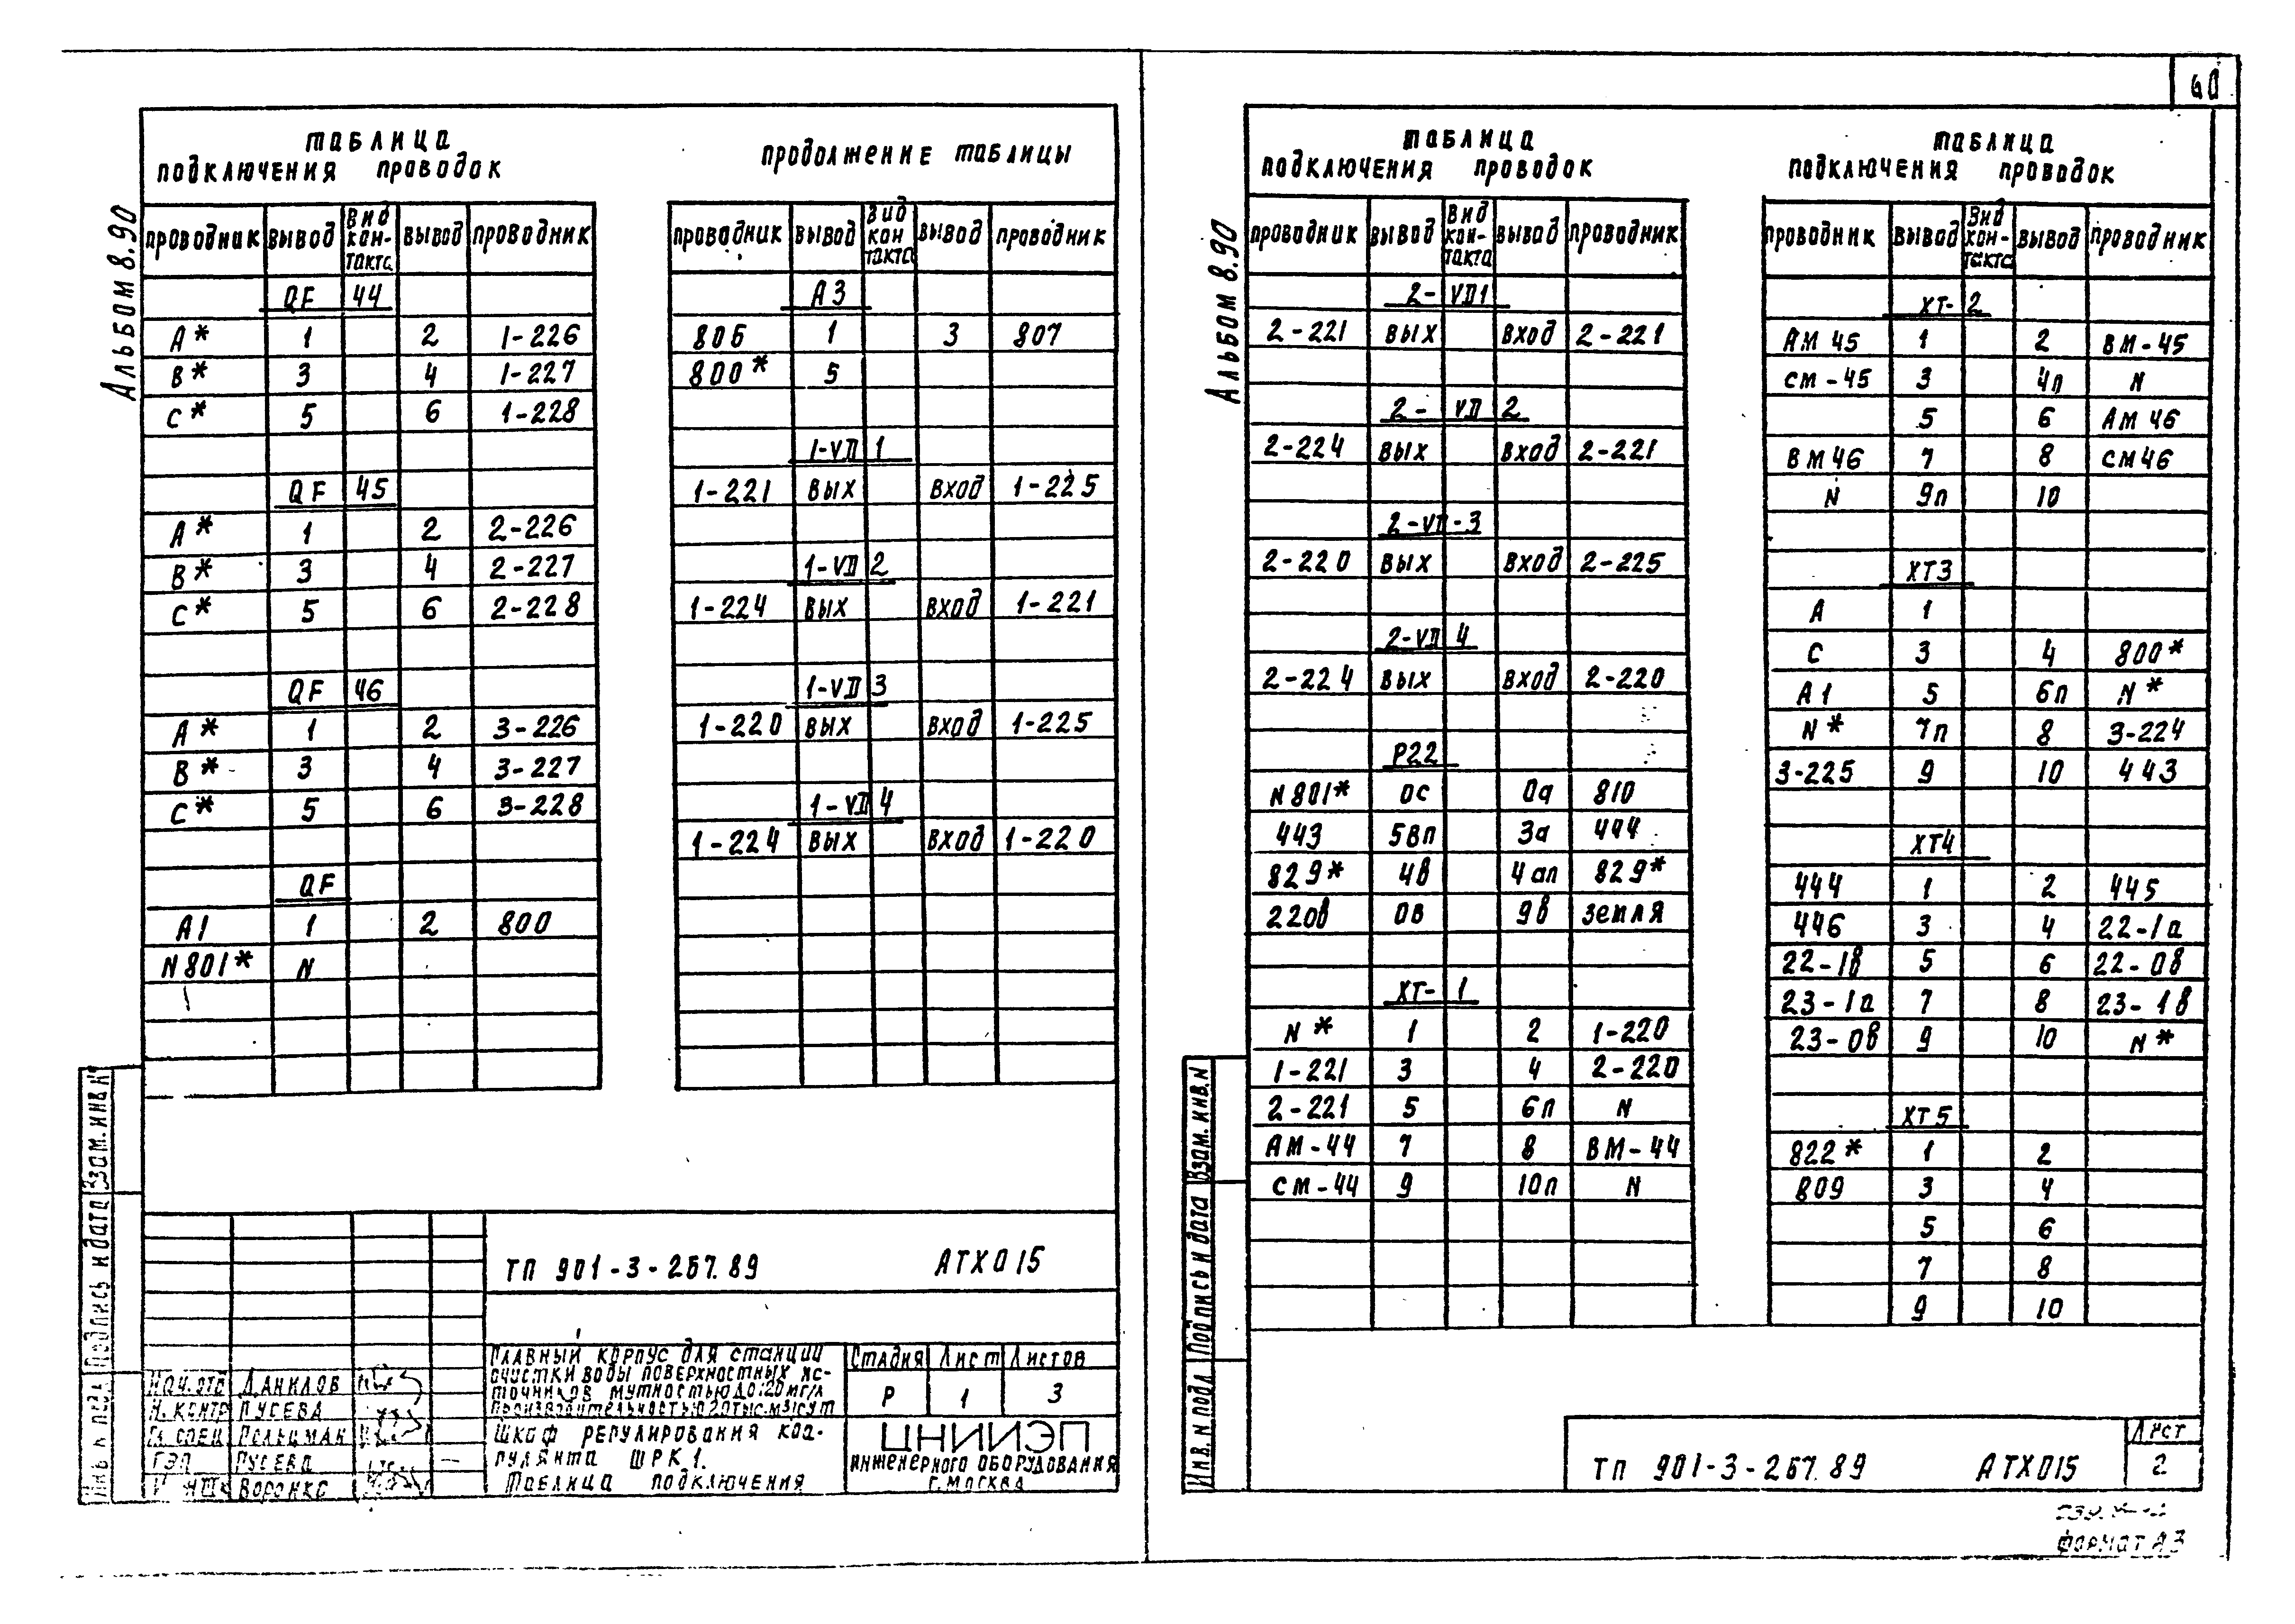 60
Альбом 8.90
таблица
подключения проводок
проводник вывод вид кон-такта вывод проводник
QF 44
А* 1 2 1-226
В* 3 4 1-227
С* 5 6 1-228
QF 45
А* 1 2 2-226
В* 3 4 2-227
С* 5 6 2-228
QF 46
А* 1 2 3-226
В* 3 4 3-227
С* 5 6 3-228
QF
А1 1 2 800
N801* N
продолжение таблицы
проводник вывод вид кон такта вывод проводник
А3
806 1 3 807
800* 5
1-VD 1
1-221 вых вход 1-225
1-VD 2
1-224 вых вход 1-221
1-VD 3
1-220 вых вход 1-225
1-VD 4
1-224 вых вход 1-220
ТП 901-3-267.89 АТХ015
Главный корпус для станции
очистки воды поверхностных ис-
точников мутностью до 120 мг/л
производительностью 20 тыс.м3/сут
Стадия Лист Листов
Р 1 3
Шкаф регулирования коа-
гулянта ШРК1.
Таблица подключения
ЦНИИЭП
инженерного оборудования
г.Москва
Нач.отд Данилов
Н.контр Гусева
Гл спец Гольцман
ГЭП Гусева
Воронко
Взам.инв.N
Подпись и дата
Инв.N подл
Альбом 8.90
таблица
подключения проводок
проводник вывод вид кон-такта вывод проводник
2-VD1
2-221 вых вход 2-221
2-VD 2
2-224 вых вход 2-221
2-VD-3
2-220 вых вход 2-225
2-VD 4
2-224 вых вход 2-220
Р22
N801* 0с 0а 810
443 5вп 3а 444
829* 4в 4ап 829*
220в 0в 9в земля
ХТ-1
N* 1 2 1-220
1-221 3 4 2-220
2-221 5 6п N
АМ-44 7 8 ВМ-44
СМ-44 9 10п N
таблица
подключения проводок
проводник вывод вид кон-такта вывод проводник
ХТ-2
АМ 45 1 2 ВМ-45
СМ-45 3 4п N
5 6 АМ 46
ВМ46 7 8 СМ46
N 9п 10
ХТ3
А 1
С 3 4 800*
А1 5 6п N*
N* 7п 8 3-224
3-225 9 10 443
ХТ4
444 1 2 445
446 3 4 22-1а
22-1в 5 6 22-0в
23-1а 7 8 23-1в
23-0в 9 10 N*
ХТ5
822* 1 2
809 3 4
5 6
7 8
9 10
Взам. инв.N
Подпись и дата
Инв.N подл
ТП 901-3-267.89 АТХ015
Лист
2
формат А3